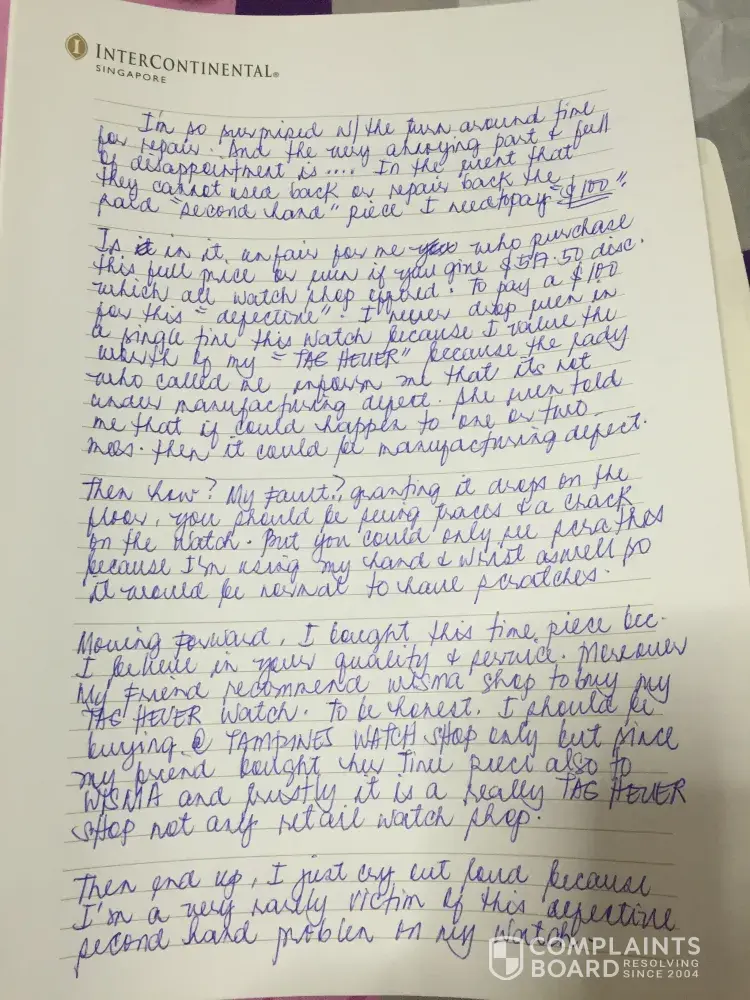 INTERCONTINENTAL®
SINGAPORE
I'm so surprised w/ the turn around time
for repair. And the very annoying part & full
of disappointment is .... In the event that
they cannot used back or repair back the
said "second hand" piece I need to pay "$100".
Is it in it, unfair for me who purchase
this full price or even if you give $517.50 disc.
which all watch shop offered. To pay a $100
for this "defective". I never drop even in
a single time this watch because I value the
worth of my "TAG HEUER" because the lady
who called me inform me that its not
under manufacturing defect. She even told
me that if could happen to one or two
mos. then it could be manufacturing defect.
Then how? My Fault?, granting it drops on the
floor, you should be seeing traces & a crack
on the watch. But you could only see scrathes
because I'm using my hand & wrist aswell so
it would be normal to have scratches.
Moving Forward, I bought this time piece bec.
I believe in your quality & service. Moreover
My Friend recommend WISMA shop to buy my
TAG HEUER watch. To be honest, I should be
buying @ TAMPINES WATCH SHOP only but since
my friend bought her Time piece also to
WISMA and firstly it is a really TAG HEUER
SHOP not any retail watch shop.
Then end up, I just cry out loud because
I'm a very victim of this defective
second hand problem on my watch.
COMPLAINTS
BOARD RESOLVING
SINCE 2004